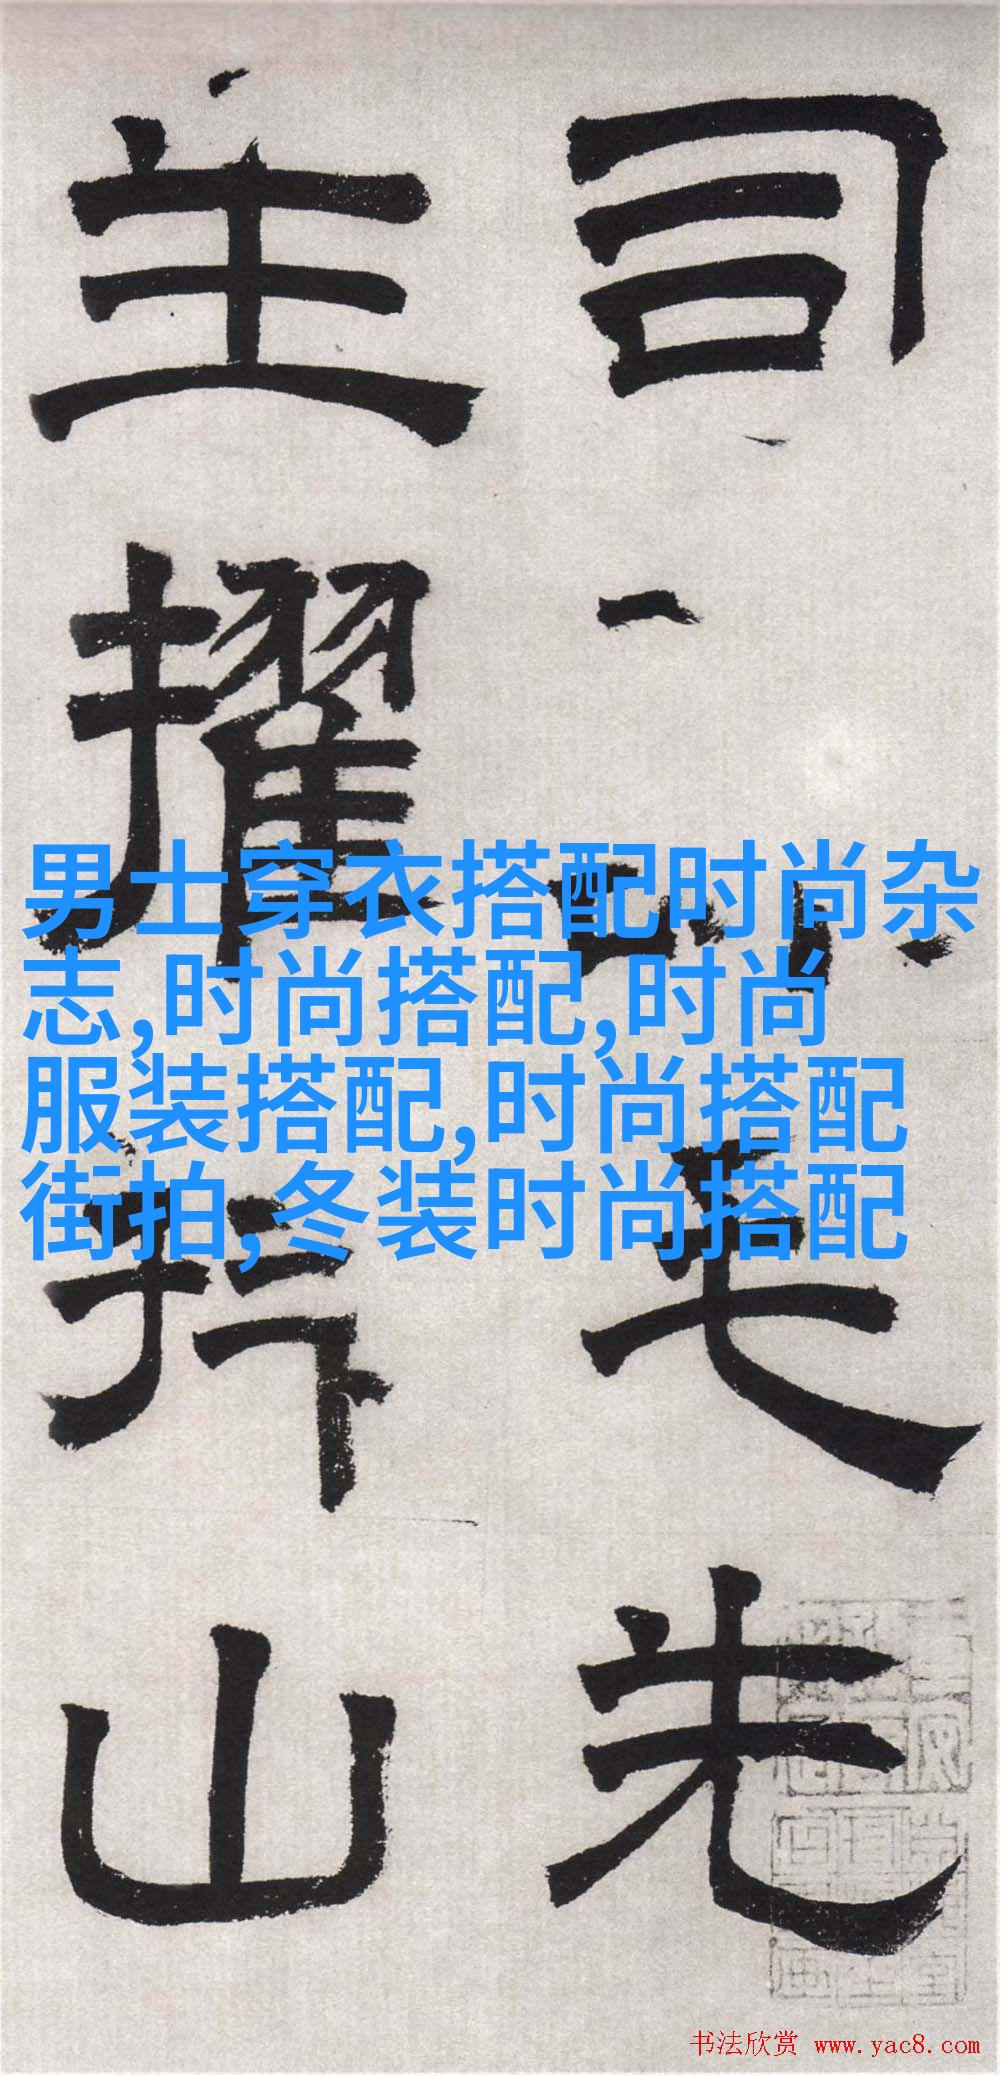 司
毛
先
主
擢
拜
山
男士穿衣搭配时尚杂
志,时尚搭配,时尚
服装搭配,时尚搭配
街拍,冬装时尚搭配
书法欣赏 www.yac8.com